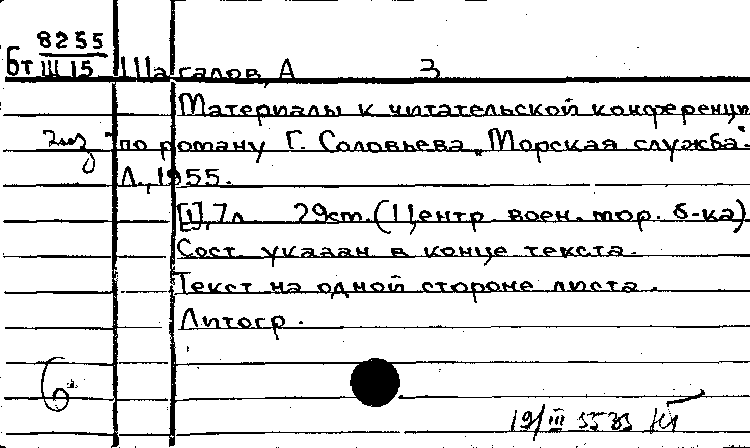 8255
Бт III 15 Шагалов, А 3
Материалы к читательской конференции
по роману Г. Соловьева „Морская служба".
Л., 1955.
[1], 7 л. 29 cm. (Центр. воен. мор. б-ка)
Сост. указан в конце текста.
Текст на одной стороне листа.
Литогр.
б
19/III 55